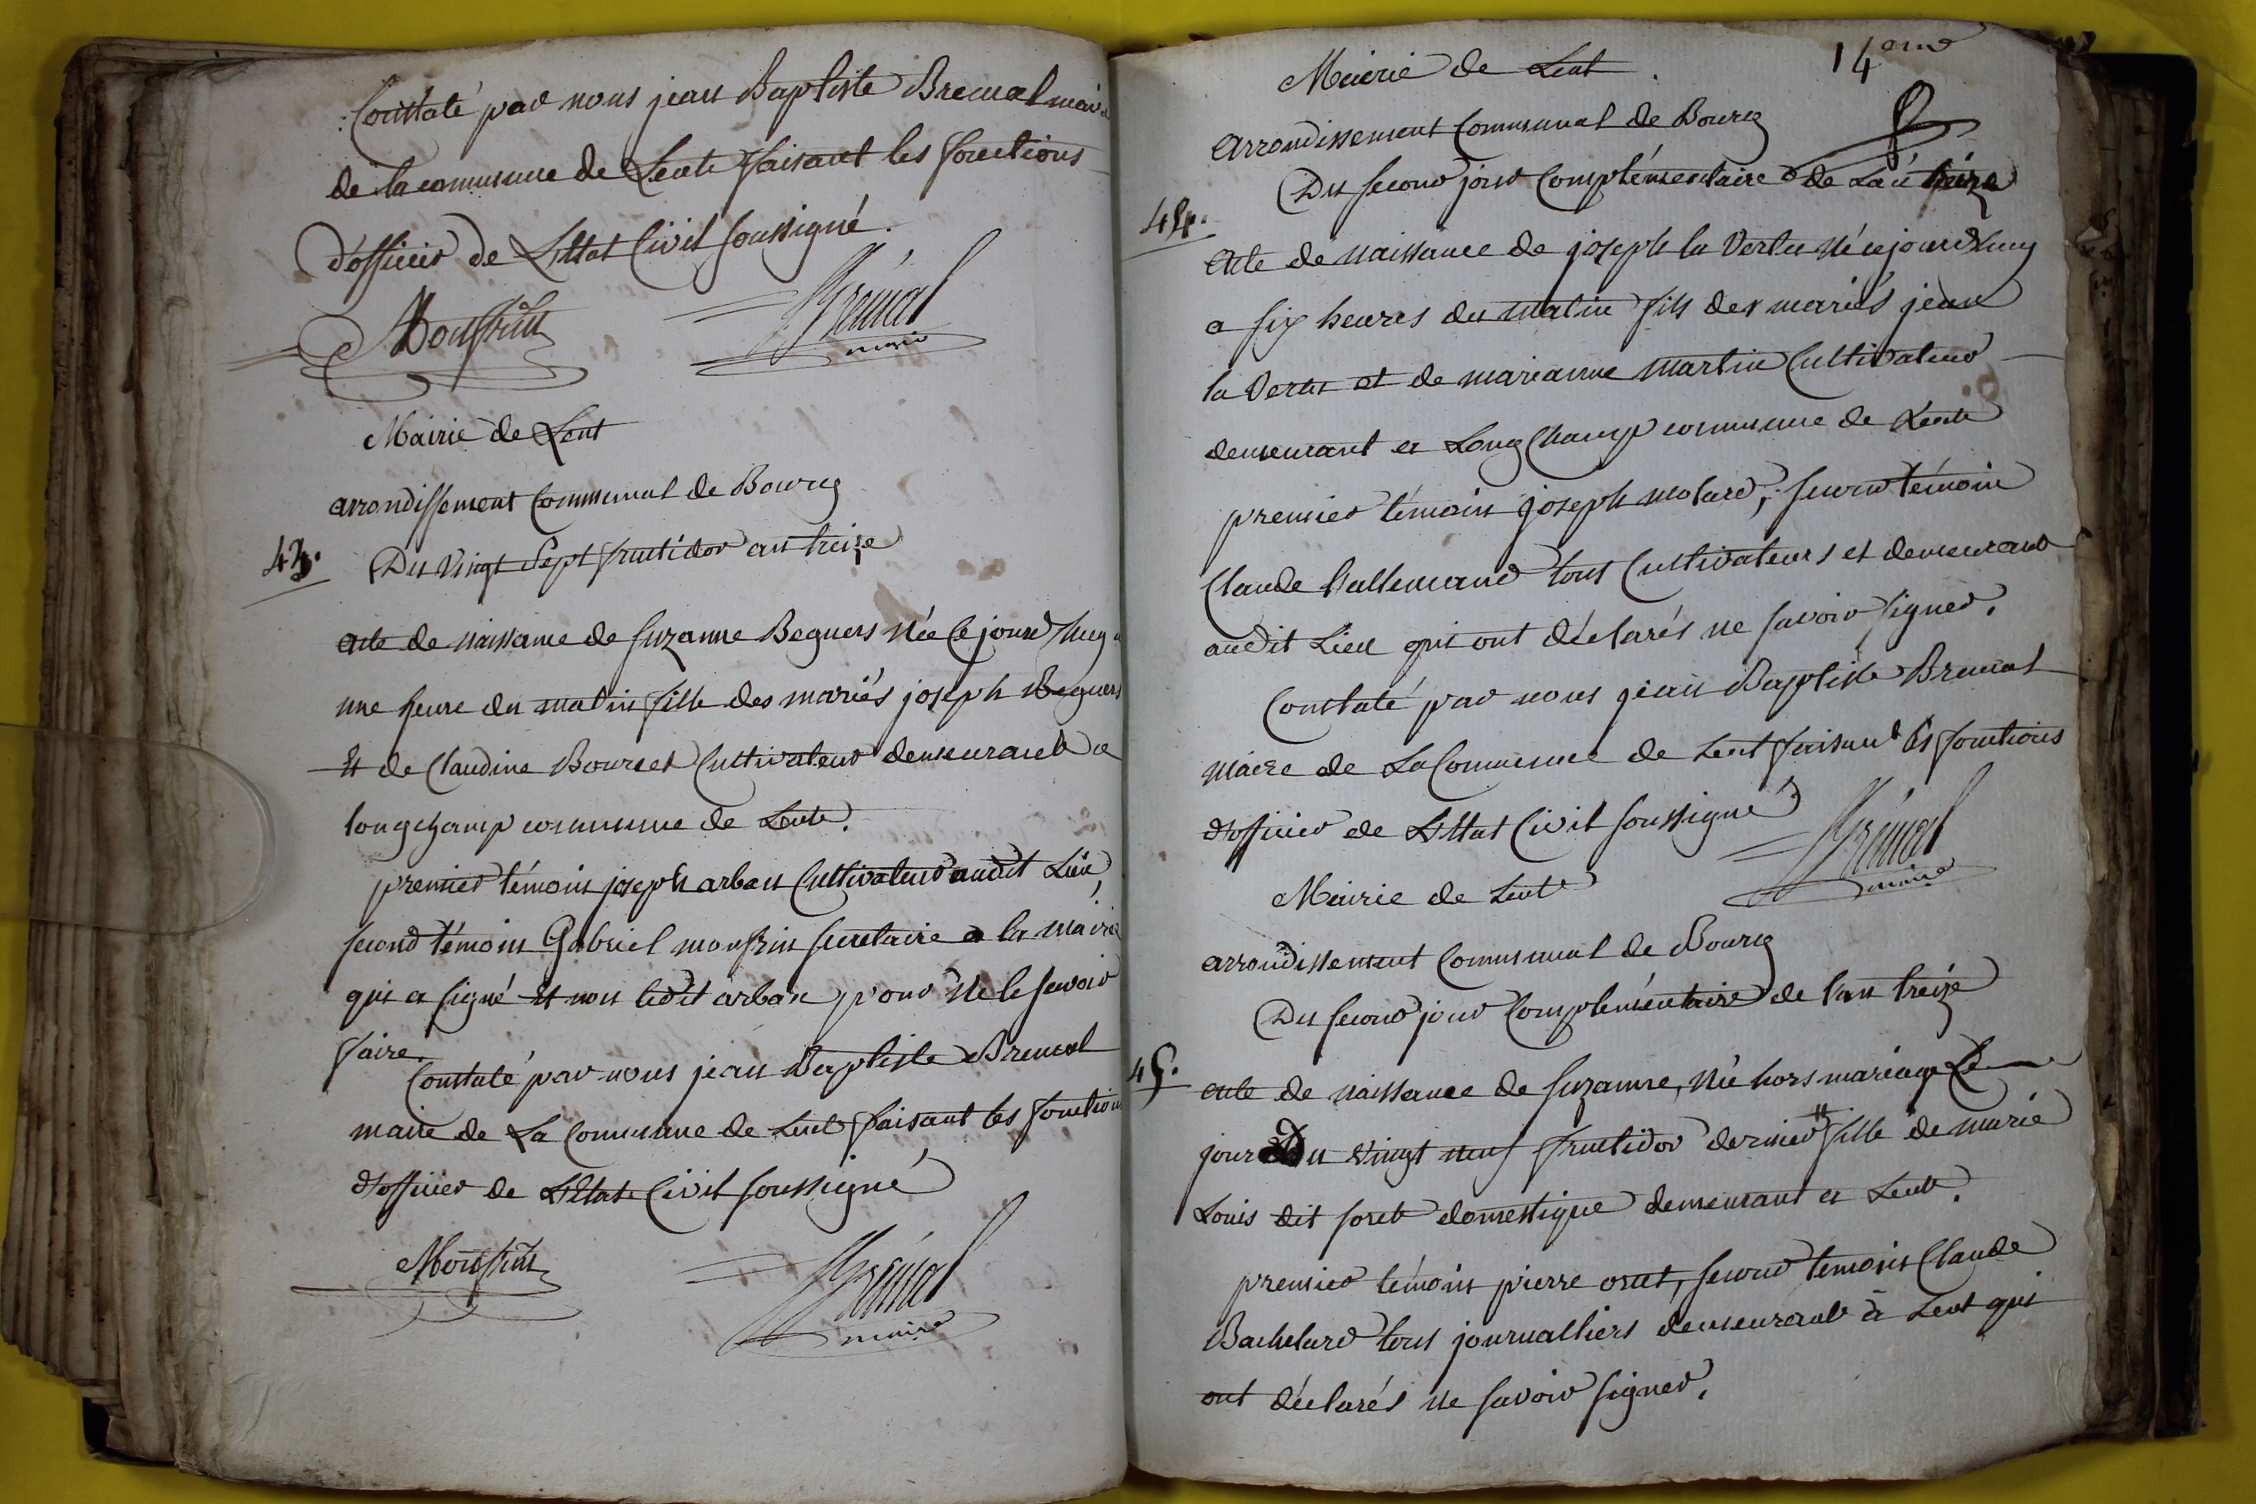 Constaté par nous jean Baptiste Brenal maire
de la commune de Lent faisant les fonctions
d'officier de L'Etat Civil soussigné.
Monfrin Brénal
maire
Mairie de Lent
arrondissement Communal de Bourg
43. Du Vingt Sept fructidor an treize
acte de naissance de suzanne Beguers Née ce jourd'huy a
une heure du matin fille des mariés joseph Beguers
Et de Claudine Bourcet Cultivateur demeurant a
longchamp commune de Lent.
premier témoin joseph arban Cultivateur audit Lieu,
second témoin Gabriel monfrin secretaire a la mairie
qui a signé Et non ledit arban pour ne le savoir
faire.
Constaté par nous jean Baptiste Brenal
maire de La Commune de Lent faisant les fonctions
d'officier de L'Etat Civil soussigné
Monfrin Brénal
maire
Mairie de Lent 14eme
arrondissement Communal de Bourg
Du second jour Complémentaire de L'an treize
44.
acte de naissance de joseph la Vertu né cejourd'huy
a six heures du matin fils des mariés jean
la Vertu et de marianne martin Cultivateur
demeurant a Long Champ commune de Lent
premier témoin joseph molard, second témoin
Claude Lallemand tous Cultivateurs et demeurant
audit Lieu qui ont déclarés ne savoir signer.
Constaté par nous jean Baptiste Brenal
maire de La Commune de Lent faisant les fonctions
d'officier de L'Etat Civil soussigné
Brénal
maire
Mairie de Lent
arrondissement Communal de Bourg
Du second jour Complémentaire de l'an treize
45. acte de naissance de suzanne, née hors mariage Le
jour Du vingt neuf fructidor dernier fille de marie
Louis dit foret domestique demeurant a Lent.
premier témoin pierre orset, second temoin Claude
Bachelard tous journalliers demeurant à Lent qui
ont déclarés ne savoir signer.